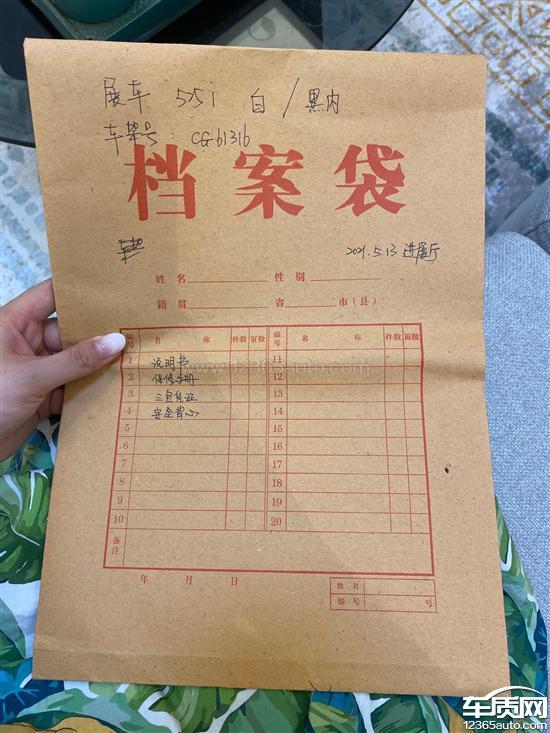 展车 525i 白/黑内
车架号: CG61316
档案袋
2021.5.13 进展厅
姓名 性别
籍贯 省 市(县)
编号 名称 件数 页数 编号 名称 件数 页数
1 说明书 11
2 保修手册 12
3 三包凭证 13
4 安全背心 14
5 15
6 16
7 17
8 18
9 19
10 20
备注
年 月 日
姓名
编号 号
www.12365auto.com
车质网
12365auto.com